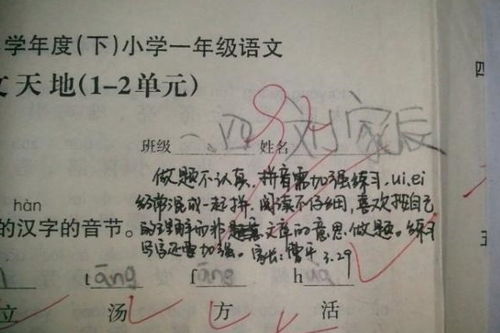 学年度(下)小学一年级语文
文天地(1-2单元)
班级 一.四 姓名 刘家辰
做题不认真，拼音需加强练习，ui、ei
经常混成一起拼，阅读不仔细，喜欢按自己
的理解而非文章的意思做题。练习
写字还要加强。家长: 3.29
hàn
的汉字的音节。
tāng f h
立 汤 方 活
四
五